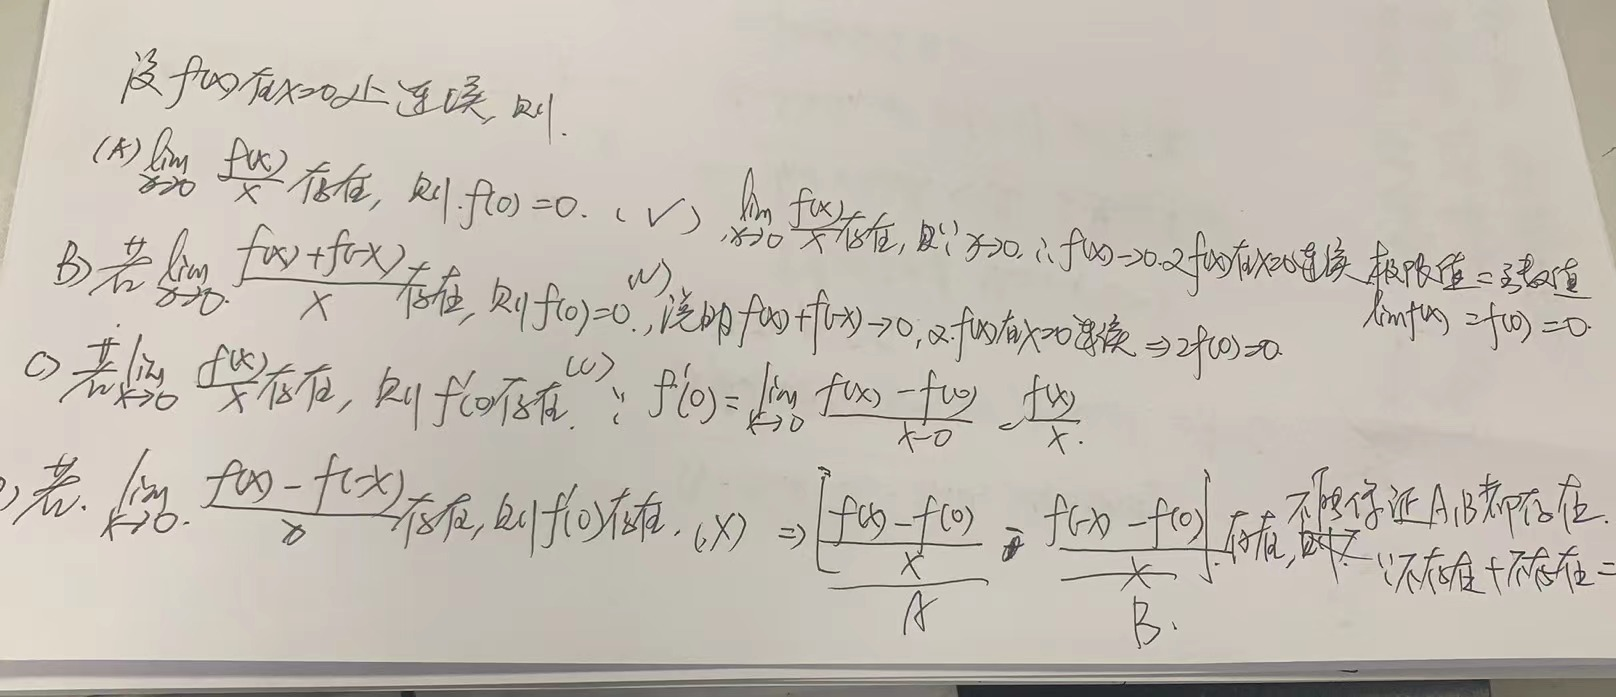 设f(x)在x=0处连续,则.
(A) lim x→0 f(x)/x 存在, 则.f(0)=0. (√) lim x→0 f(x)/x 存在, 则∵x→0. ∴f(x)→0.又f(x)在x=0连续 极限值=函数值
limf(x)=f(0)=0.
B) 若 lim x→0. f(x)+f(-x)/x 存在, 则f(0)=0. (√), 说明f(x)+f(-x)→0, 又.f(x)在x=0连续 ⇒2f(0)=0.
C) 若 lim x→0 f(x)/x 存在, 则f'(0)存在. (√) ∵ f'(0)= lim x→0 f(x)-f(0)/x-0 = f(x)/x.
) 若. lim x→0. f(x)-f(-x)/x 存在, 则f'(0)存在. (X) ⇒ [f(x)-f(0)/x - f(-x)-f(0)/x] 存在, 不能保证A,B都存在.
A B. ∵不存在+不存在=